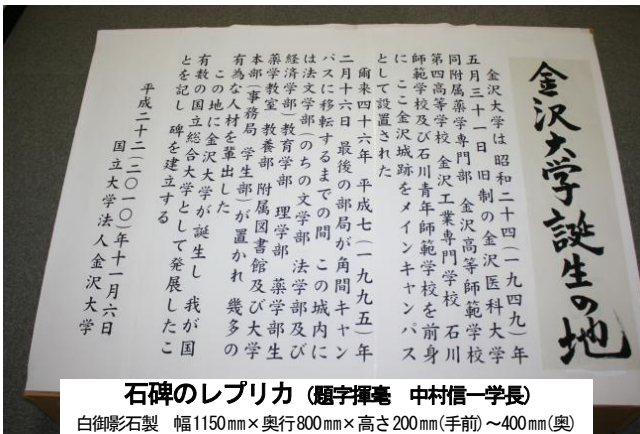 金沢大学誕生の地
金沢大学は 昭和二十四(一九四九)年
五月三十一日 旧制の金沢医科大学
同附属薬学専門部 金沢高等師範学校
第四高等学校 金沢工業専門学校 石川
師範学校及び石川青年師範学校を前身
に ここ金沢城跡をメインキャンパス
として設置された
爾来四十六年 平成七(一九九五)年
二月十六日 最後の部局が角間キャン
パスに移転するまでの間 この城内に
は法文学部(のちの文学部 法学部及び
経済学部)教育学部 理学部 薬学部生
薬学教室 教養部 附属図書館及び大学
本部(事務局 学生部)が置かれ 幾多の
有為な人材を輩出した
この地に金沢大学が誕生し 我が国
有数の国立総合大学として発展したこ
とを記し 碑を建立する
平成二十二(二〇一〇)年十一月六日
国立大学法人金沢大学
石碑のレプリカ(題字揮毫 中村信一学長)
白御影石製 幅1150㎜×奥行800㎜×高さ200㎜(手前)~400㎜(奥)